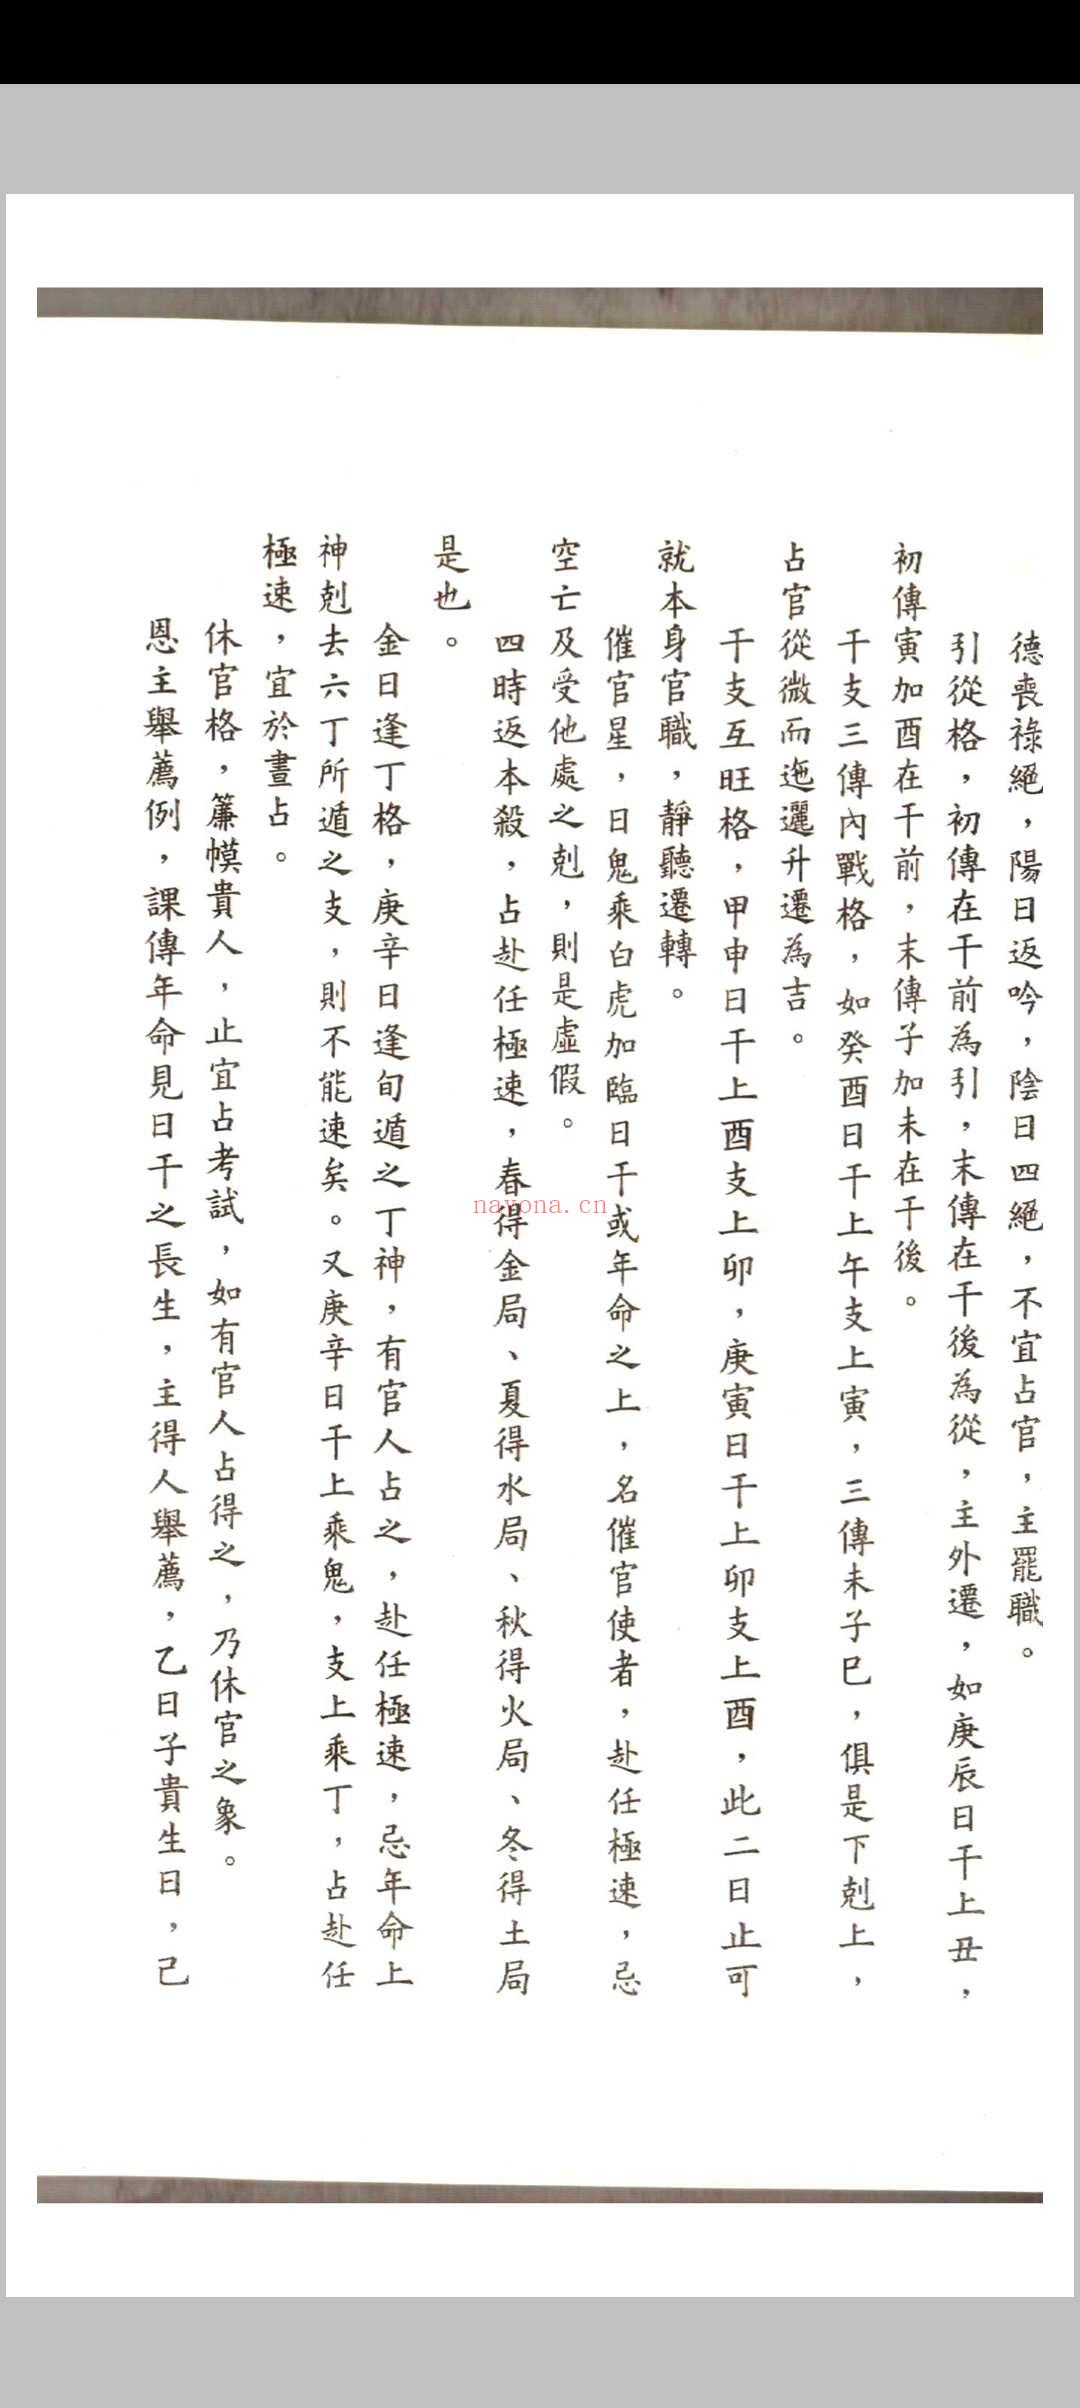 德喪祿絕，陽日返吟，陰日四絕，不宜占官，主罷職。
引從格，初傳在干前為引，末傳在干後為從，主外遷，如庚辰日干上丑，
初傳寅加酉在干前，末傳子加未在干後。
干支三傳內戰格，如癸酉日干上午支上寅，三傳未子巳，俱是下剋上，
占官從微而迤邐升遷為吉。
干支互旺格，甲申日干上酉支上卯，庚寅日干上卯支上酉，此二日止可
就本身官職，靜聽遷轉。
催官星，日鬼乘白虎加臨日干或年命之上，名催官使者，赴任極速，忌
空亡及受他處之剋，則是虛假。
四時返本殺，占赴任極速，春得金局、夏得水局、秋得火局、冬得土局
是也。
金日逢丁格，庚辛日逢旬遁之丁神，有官人占之，赴任極速，忌年命上
神剋去六丁所遁之支，則不能速矣。又庚辛日干上乘鬼，支上乘丁，占赴任
極速，宜於晝占。
休官格，簾幙貴人，止宜占考試，如有官人占得之，乃休官之象。
恩主舉薦例，課傳年命見日干之長生，主得人舉薦，乙日子貴生日，己
nayona.cn